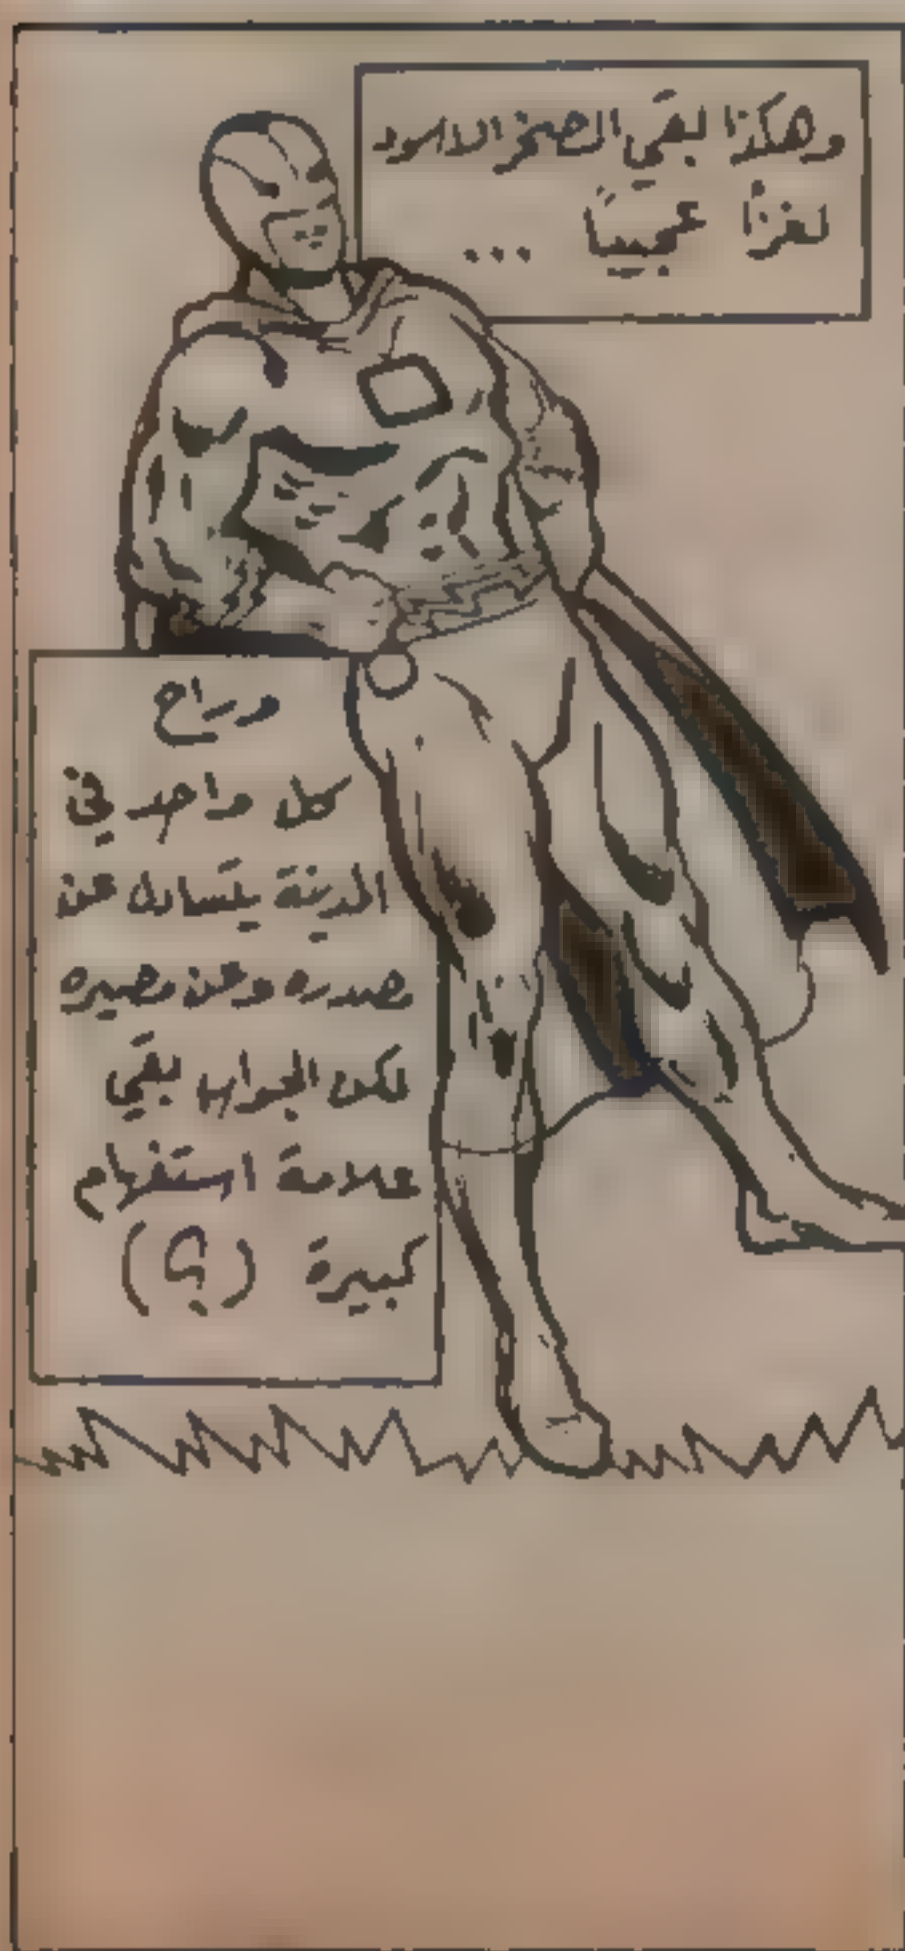 وهكذا بقي الصخر الاسود
لغزاً عجيباً ...
وراح
كل واحد في
المدينة يتساءل عن
مصدره وعن مصيره
لكن الجواب بقي
علامة استفهام
كبيرة (؟)